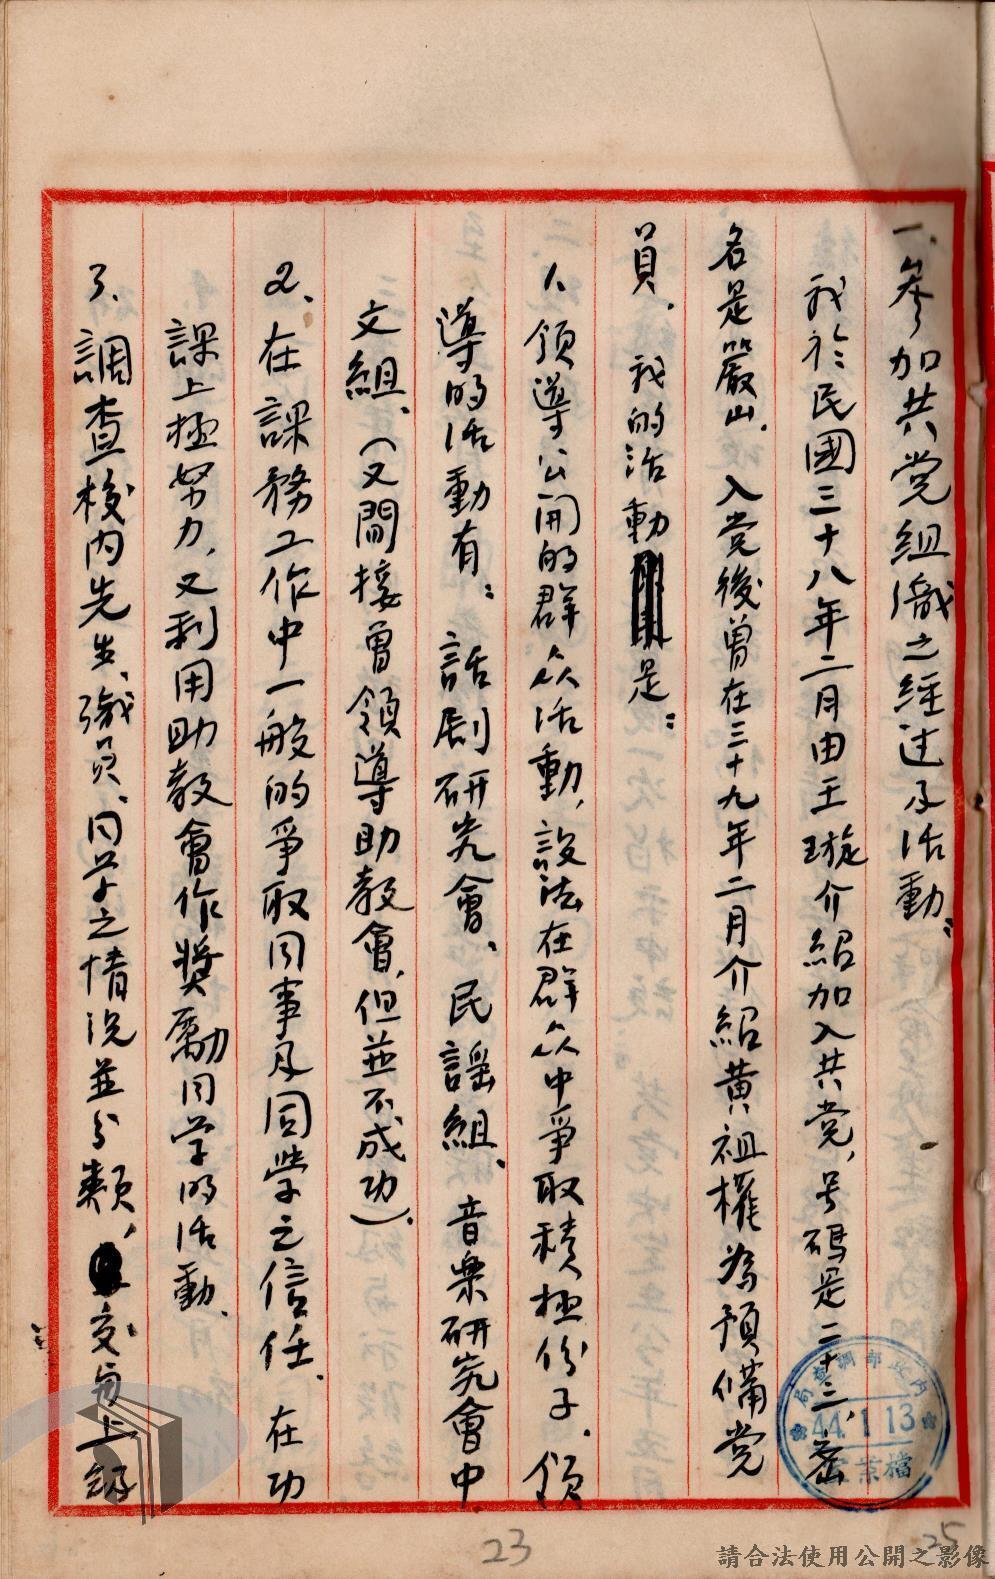 一、參加共党組織之經过及活動：
我於民國三十八年二月由王璇介紹加入共党，号碼是二十三，密
名是嚴山．入党後曾在三十九年二月介紹黄祖權為預備党
員．我的活動是：
1、領導公開的群众活動，設法在群众中爭取積极份子．領
導的活動有：話劇研究會、民謡組、音樂研究會中
文組、（又間接曾領導助教會，但並不成功）．
2、在課務工作中一般的爭取同事及同學之信任．在功
課上极努力，又利用助教會作奬勵同学的活動．
3、調查校内先生、職員、同学之情况並分類，交与上級
內政部調查局
44.1.13
檔案室
23
25
請合法使用公開之影像